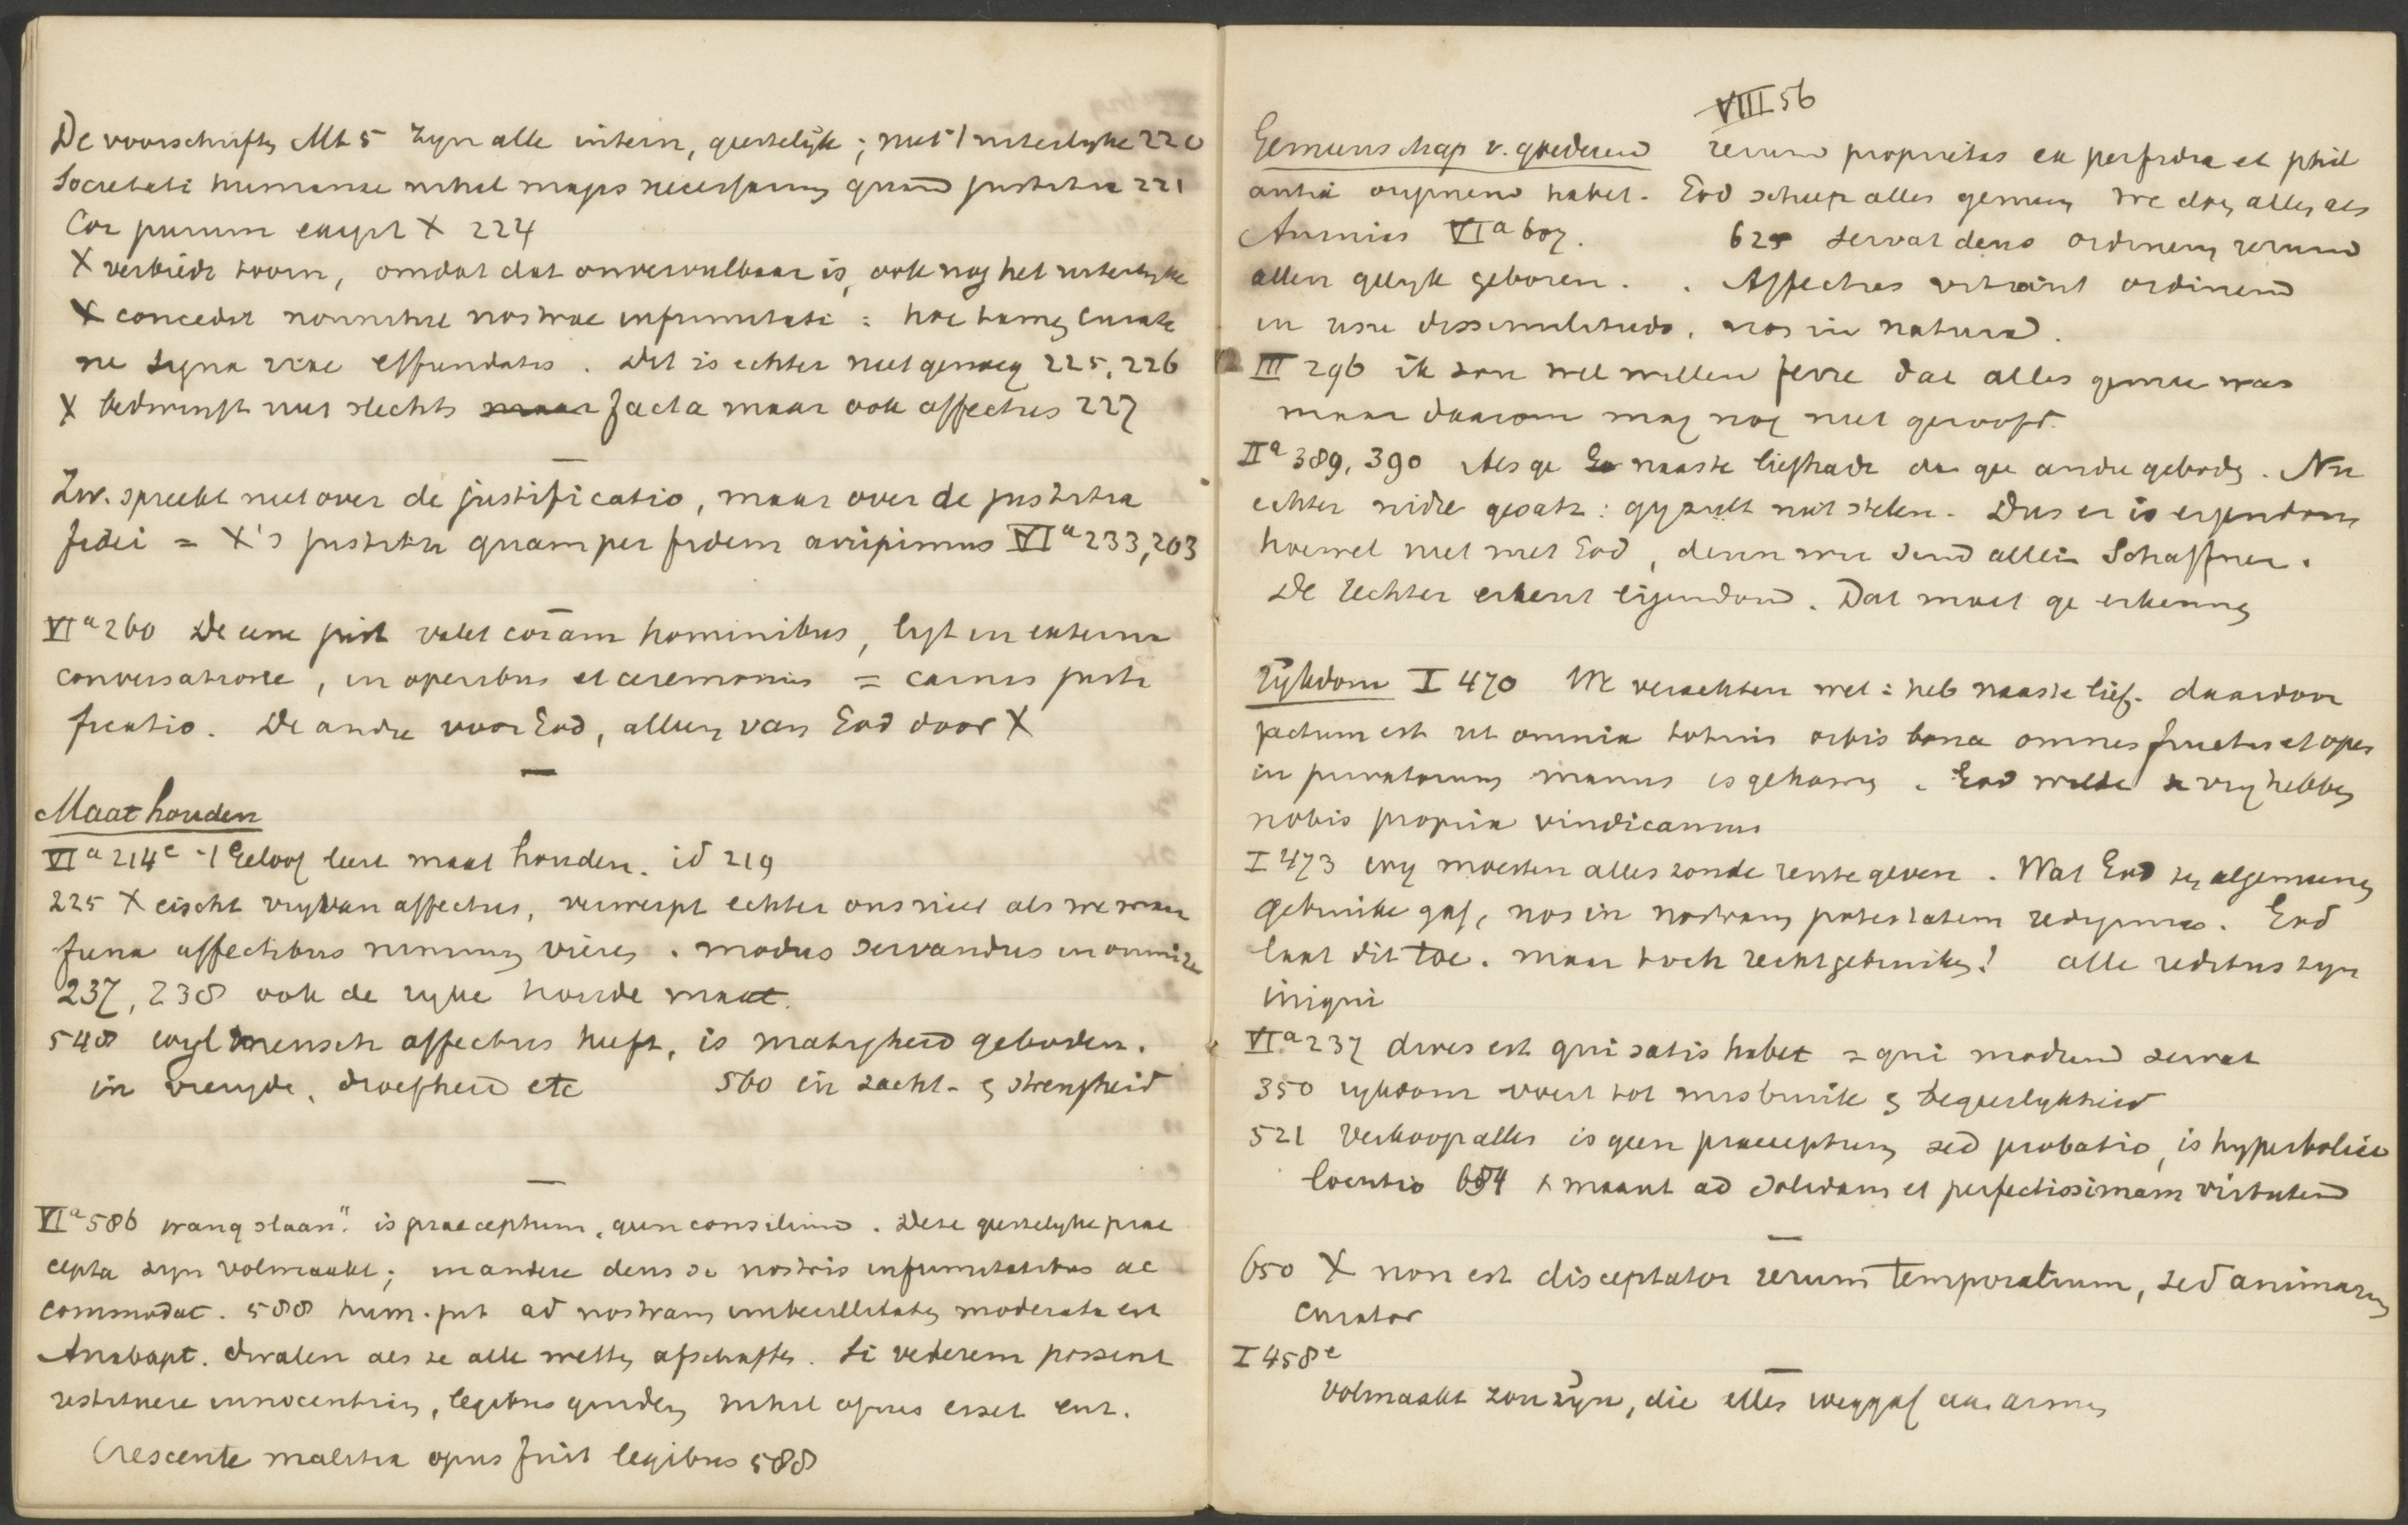 De voorschriften Mt 5 zyn alle intern, geestelijk; niet 't uiterlyke 220
Societati humanae nihil magis necessarium quam justitia 221
Cor purum eischt X 224
X verbiedt toorn, omdat dat onvervulbaar is, ook nog het uiterlyke
X concedit nonnihil nostrae infirmitati: hoc tamen curate
ne signa irae effundatis. Dit is echter niet genoeg 225, 226
X bedwingt niet slechts facta maar ook affectus 227
Zw. spreekt niet over de justificatio, maar over de justitia
fidei = X's justitia quam per fidem accipimus VIa 233, 203
VIa 260 De eene just valet coram hominibus, ligt in externa
conversatione, in operibus et ceremoniis = carnis justi
ficatio. De andre voor God, alleen van God door X
Maat houden
VIa 214e 't Geloof leert maat houden. id 219
225 X eischt vry van affectus, verwerpt echter ons niet als we
affectibus nimium. modus servandus in omni re
237, 238 ook de ryke houde maat.
548 wyl mensch affectus heeft, is matigheid geboden.
in vreugde, droefheid etc 560 in zacht- en strengheid
VIa 586 wang slaan" is praeceptum, geen consilium. Deze geestelyke prae
cepta zyn volmaakt; in andere deus se nostris infirmitatibus ac
commodat. 588 hum. just ad nostram imbecillitatem moderata est
Anabapt. dwalen als ze alle wetten afschaften. Si veterem possent
restituere innocentiam, legibus quidem nihil opus esset enz.
Crescente malitia opus fuit legibus 588
VIII 56
Gemeenschap v. goederen rerum proprietas ex perfidia et phil
autia originem habet. God schiep alles gemeen We doen alles als
Ananias VIa 607. 625 servat deus ordinem rerum
allen gelyk geboren. Affectus vitiant ordinem
in usu dissimilitudo, nos in natura.
III 296 ik zou wel willen dat alles gemeen was
maar daarom mag nog niet geroofd.
IIa 389, 390 Als ge naaste liefhadt dan geen andre geboden. Nu
echter nidre gesatz: gy zult niet stelen. Dus er is eigendom
hoewel niet met God, denn wir sind allein Schaffner.
De rechter erkent eigendom. Dat moet ge erkennen
Rijkdom I 470 We verachten wet: heb naaste lief. daardoor
factum est ut omnia totius orbis bona omnes fructus et opes
in privatorum manus is gekomen. God wilde vry hebben
nobis propria vindicamus
I 473 wy moesten alles zonde rente geven. Wat God ten algemeenen
gebruike gaf, nos in nostram potestatem redigimus. God
laat dit toe. maar toch recht gebruiken! alle reditus zyn
iniqui
VIa 237 dives est qui satis habet = qui modum servat
350 rykdom voert tot misbruik en begeerlykheid
521 Verkoop alles is geen praeceptum sed probatio, is hyperbolica
locutio 654 X maant ad solidam et perfectissimam virtutem
650 X non est disceptator rerum temporalium, sed animarum
curator
I 458e
volmaakt zou zijn, die alles weggaf aan armen